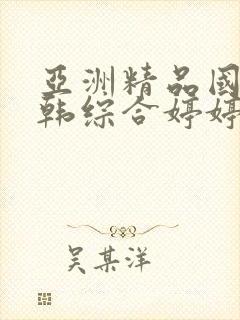 亞洲精品國
韩综合婷婷
吴某洋